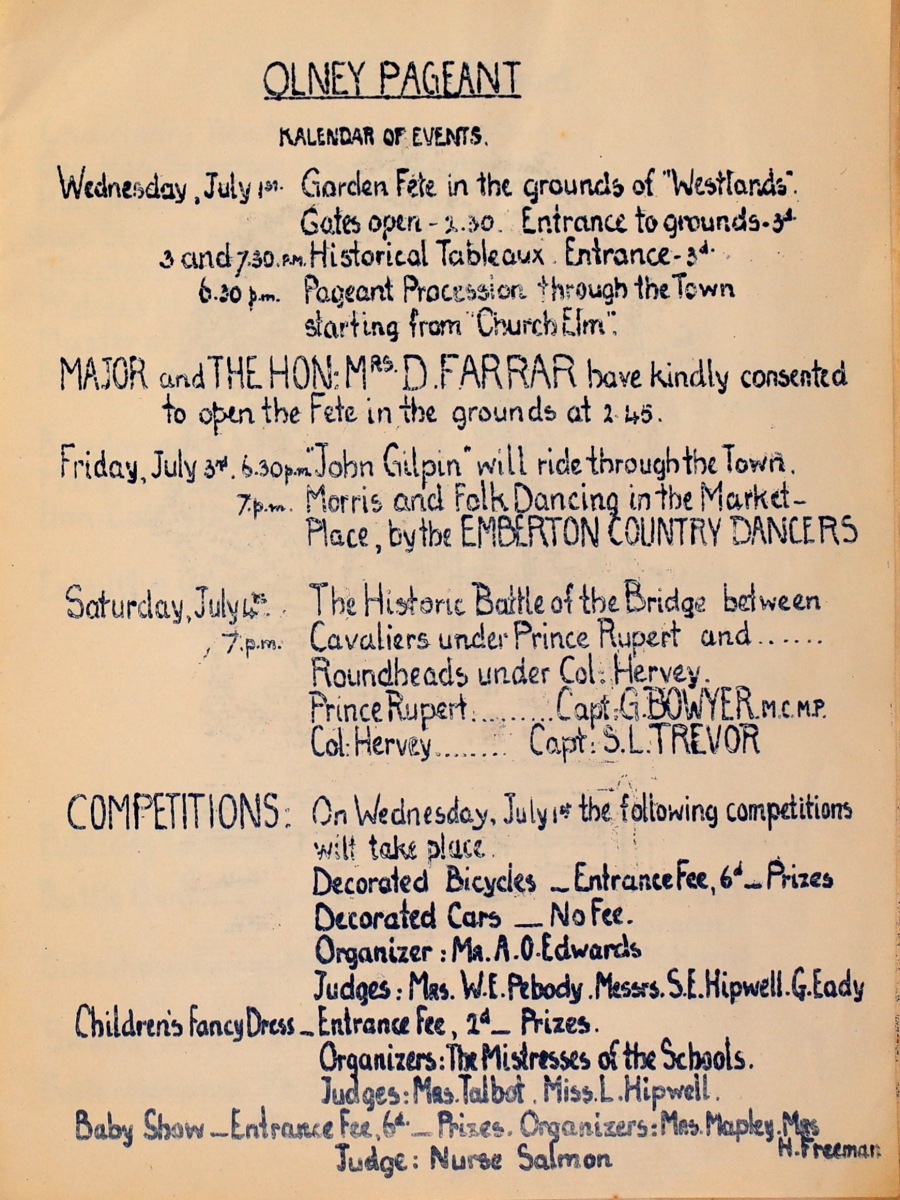 OLNEY PAGEANT
KALENDAR OF EVENTS.
Wednesday, July 1st. Garden Fete in the grounds of "Westlands".
Gates open - 2.30. Entrance to grounds - 3d.
3 and 7.30. P.M. Historical Tableaux. Entrance - 3d.
6.30 p.m. Pageant Procession through the Town
starting from "Church Elm".
MAJOR and THE HON: MRS. D. FARRAR have kindly consented
to open the Fete in the grounds at 2.45.
Friday, July 3rd. 6.30p.m. "John Gilpin" will ride through the Town.
7.p.m. Morris and Folk Dancing in the Market-
Place, by the EMBERTON COUNTRY DANCERS
Saturday, July The Historic Battle of the Bridge between
7.p.m. Cavaliers under Prince Rupert and ......
Roundheads under Col: Hervey.
Prince Rupert......... Capt: G. BOWYER. M.C. M.P.
Col: Hervey........ Capt: S. L. TREVOR
COMPETITIONS: On Wednesday, July 1st the following competitions
will take place.
Decorated Bicycles _ Entrance Fee, 6d _ Prizes
Decorated Cars _ No Fee.
Organizer : Mr. A. O. Edwards
Judges : Mrs. W. E. Pebody. Messrs. S. E. Hipwell. G. Eady
Children's Fancy Dress _ Entrance Fee, 2d _ Prizes.
Organizers: The Mistresses of the Schools.
Judges: Mrs. Talbot. Miss. L. Hipwell.
Baby Show _ Entrance Fee, 6d. _ Prizes. Organizers: Mrs. Mapley. Mrs
H. Freeman
Judge: Nurse Salmon